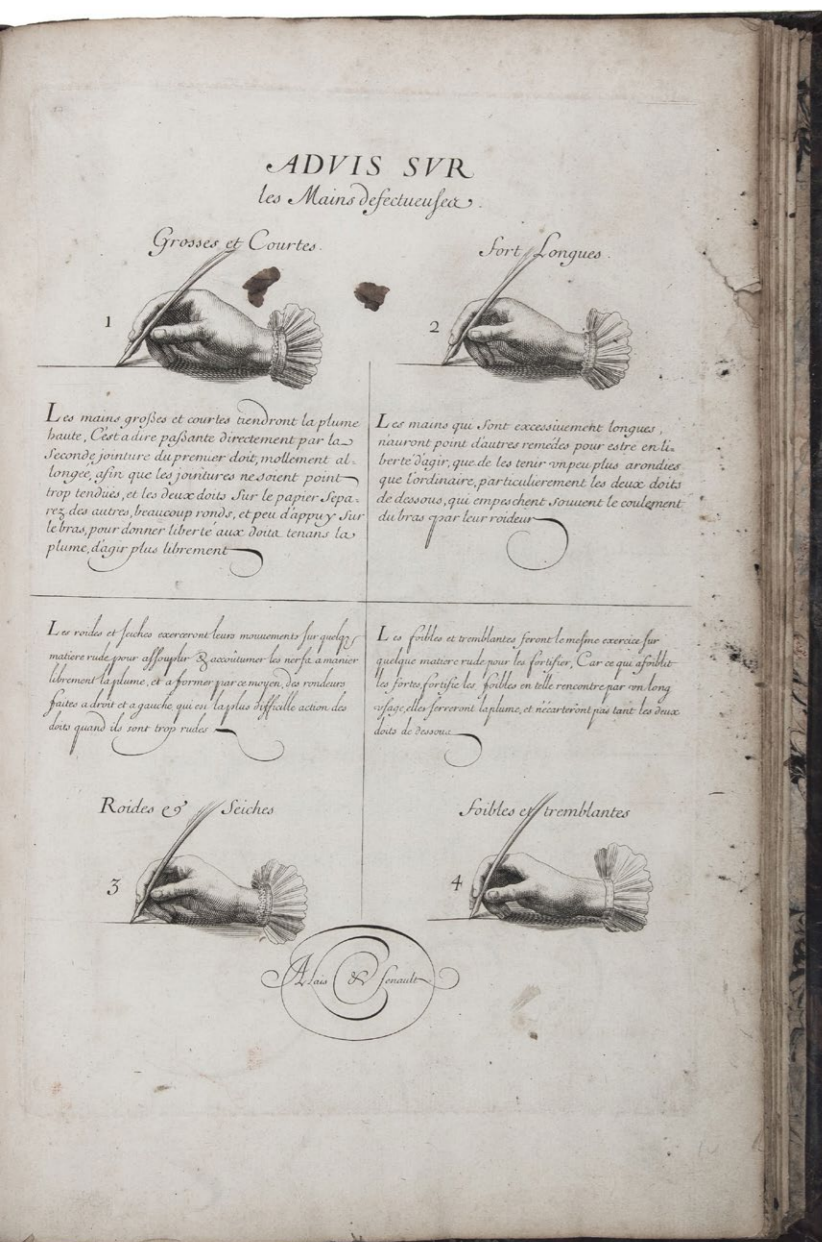 ADVIS SVR
les Mains defectueuses.
Grosses et Courtes.
1
Les mains großes et courtes tiendront la plume
haute, C'est a dire paßante directement par la
Seconde jointure du premier doit, mollement al-
longée, afin que les jointures ne soient point
trop tendues, et les deux doits Sur le papier Sepa-
rez des autres, beaucoup ronds, et peu d'appuy Sur
le bras, pour donner liberté aux doits tenans la
plume, d'agir plus librement
Fort Longues.
2
Les mains qui Sont excessiuement longues,
n'auront point d'autres remedes pour estre en li-
berté d'agir, que de les tenir vn peu plus arondies
que l'ordinaire, particulierement les deux doits
de dessous, qui empeschent Souuent le coulement
du bras par leur roideur
Les roides et seiches exerceront leurs mouuements sur quelqz
matiere rude pour assouplir & accoûtumer les nerfs a manier
librement la plume, et a former par ce moyen, des rondeurs
faites a droit et a gauche, qui est la plus difficille action des
doits quand ils sont trop rudes
Roides & Seiches
3
Les foibles et tremblantes feront le mesme exercice sur
quelque matiere rude pour les fortifier, Car ce qui afoiblit
les fortes, fortifie les foibles en telle rencontre par vn long
vsage, elles serreront la plume, et n'écarteront pas tant les deux
doits de dessous
Foibles et tremblantes
4
Alais & Senault